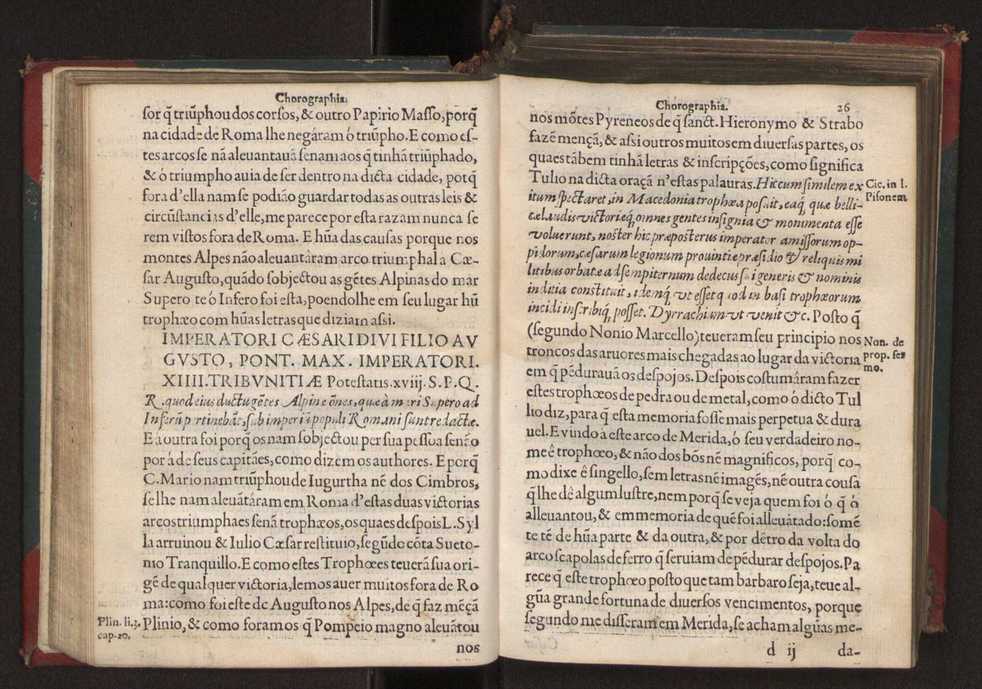 Chorographia.
sor q̃ triũphou dos corsos, & outro Papirio Masso, porq̃
na cidade de Roma lhe negáram ó triũpho. E como es-
tes arcos se nã aleuantauã senam aos q̃ tinhã triũphado,
& ó triumpho auia de ser dentro na dicta cidade, porq̃
fora d'ella nam se podião guardar todas as outras leis &
circũstancias d'elle, me parece por esta razam nunca se
rem vistos fora de Roma. E hũa das causas porque nos
montes Alpes não aleuantáram arco triumphal a Cæ-
sar Augusto, quãdo sobjectou as gẽtes Alpinas do mar
Supero te ó Infero foi esta, poendolhe em seu lugar hũ
trophæo com hũas letras que diziam assi.
IMPERATORI CÆSARI DIVI FILIO AV
GVSTO, PONT. MAX. IMPERATORI.
XIIII. TRIBVNITIÆ Potestatis. xvij. S. P. Q.
R. quod eius ductu gẽtes Alpine õnes, quæ à mari Supero ad
Inferũ pertinebãt, sub imperiũ populi Romani sunt redactæ.
E á outra foi porq̃ os nam sobjectou per sua pessoa senão
por á de seus capitães, como dizem os authores. E porq̃
C. Mario nam triũphou de Iugurtha nẽ dos Cimbros,
se lhe nam aleuãtáram em Roma d'estas duas victorias
arcos triumphaes senã trophæos, os quaes despois L. Syl
la arruinou & Iulio Cæsar restituio, segũdo cõta Sueto-
nio Tranquillo. E como estes Trophœes teuerã sua ori-
gẽ de qualquer victoria, lemos auer muitos fora de Ro
ma: como foi este de Augusto nos Alpes, de q̃ faz mẽçã
Plin. li. 3.
cap. 20.
Plinio, & como foram os q̃ Pompeio magno aleuãtou
nos
Chorographia.
26
nos mõtes Pyreneos de q̃ sanct. Hieronymo & Strabo
fazẽ mençã, & assi outros muitos em diuersas partes, os
quaes tãbem tinhã letras & inscripções, como significa
Tulio na dicta oraçã n'estas palauras. Hic cum similem ex
Cic. in l.
Pisonem
itum spectaret, in Macedonia trophæa posuit, eaq; quæ belli-
cæ laudis victoriæq; omnes gentes insignia & monumenta esse
voluerunt, noster hic præposterus imperator amissorum op-
pidorum, cæsarum legionum prouintiæ præsidio & reliquis mi
litibus orbatæ ad sempiternum dedecus sui generis & nominis
inditia constituit, idemq; vt esset quod in basi trophæorum
incidi inscribiq; posset. Dyrrachium vt venit &c. Posto q̃
(segundo Nonio Marcello) teueram seu principio nos
Non. de
prop. ser
mo.
troncos das aruores mais chegadas ao lugar da victoria
em q̃ pẽdurauã os despojos. Despois costumáram fazer
estes trophœos de pedra ou de metal, como ó dicto Tul
lio diz, para q̃ esta memoria fosse mais perpetua & dura
uel. E vindo á este arco de Merida, ó seu verdadeiro no-
me ê trophœo, & não dos bõs nẽ magnificos, porq̃ co-
mo dixe ê singello, sem letras nẽ imagẽs, nẽ outra cousa
q̃ lhe dê algum lustre, nem porq̃ se veja quem foi ó q̃ ó
alleuantou, & em memoria de quẽ foi alleuãtado: somẽ
te tẽ de hũa parte & da outra, & por dẽtro da volta do
arco scapolas de ferro q̃ seruiam de pẽdurar despojos. Pa
rece q̃ este trophœo posto que tam barbaro seja, teue al-
gũa grande fortuna de diuersos vencimentos, porque
segundo me disseram em Merida, se acham algũas me-
d ij
da-